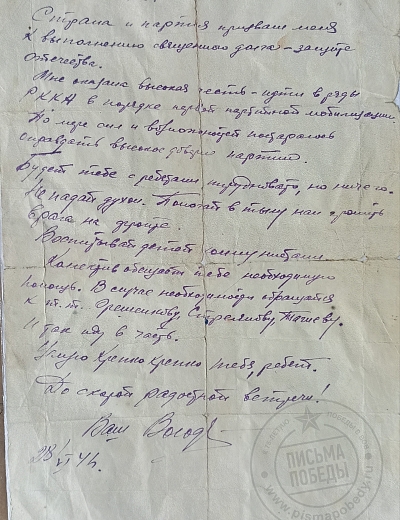 Страна и партия призвали меня
к выполнению священного долга – защите
отечества.
Мне оказана высокая честь – идти в ряды
РККА в порядке первой партийной мобилизации.
По мере сил и возможностей постараюсь
оправдать высокое доверие партии.
Будет тебе с ребятами трудновато, но ничего.
Не падай духом. Помогай в тылу нам громить
врага на фронте.
Воспитывай детей коммунистами.
Коллектив обещает тебе необходимую
помощь. В случае необходимости обращайся
к т.т. Орешникову, Стрелкову,
Итак иду в часть.
Целую крепко крепко тебя, ребят.
До скорой радостной встречи!
Ваш Володя
28/VI 41.
ПИСЬМА
ПОБЕДЫ
www.pismapobedy.ru